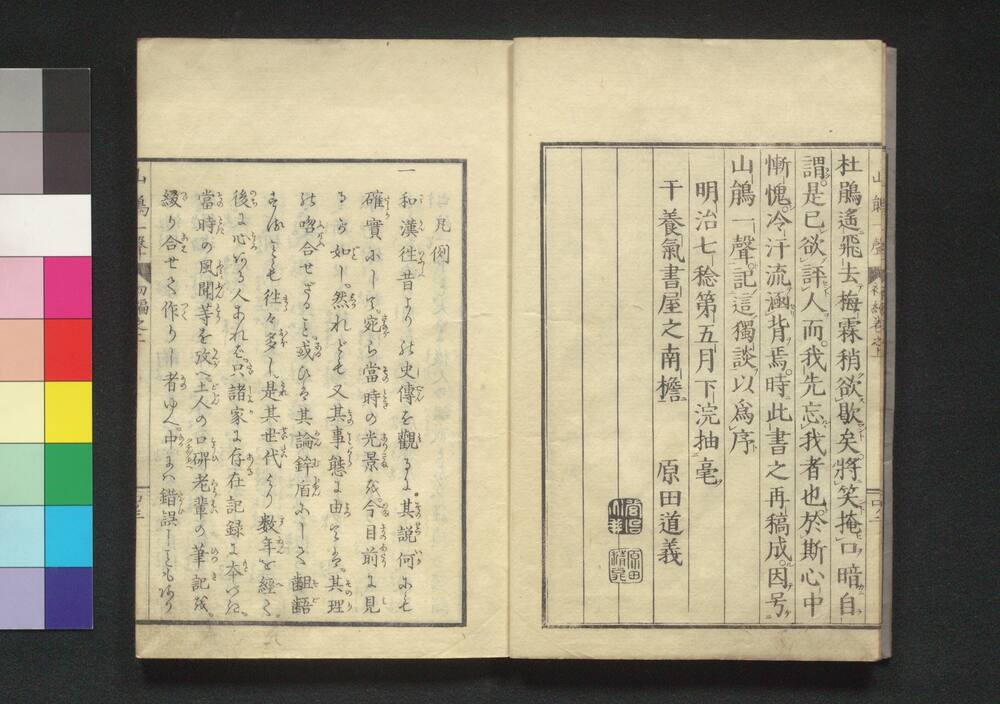 杜鵑遙飛去梅霖稍欲歇矣將笑掩口暗自
謂是已欲評人而我先忘我者也於斯心中
慚愧冷汗流涵背焉時此書之再稿成因号
山鵑一聲記這獨談以爲序
明治七稔第五月下浣抽毫
于養氣書屋之南檐 原田道義
凡例
一 和漢往昔よりの史傳を觀るに其説何にも
確實にして宛ら當時の光景を今目前に見
るが如し然れども又其事態に由ては其理
の吻合せざるも或ひは其論鉾盾にして齟齬
するも往々多し是其世代より数年を經て
後に心ある人あれば只諸家に存在記録に本づき
當時の風聞等を攷へ土人の口碑老輩の筆記を
綴り合せて作りし者ゆゑ中には錯誤しもあり